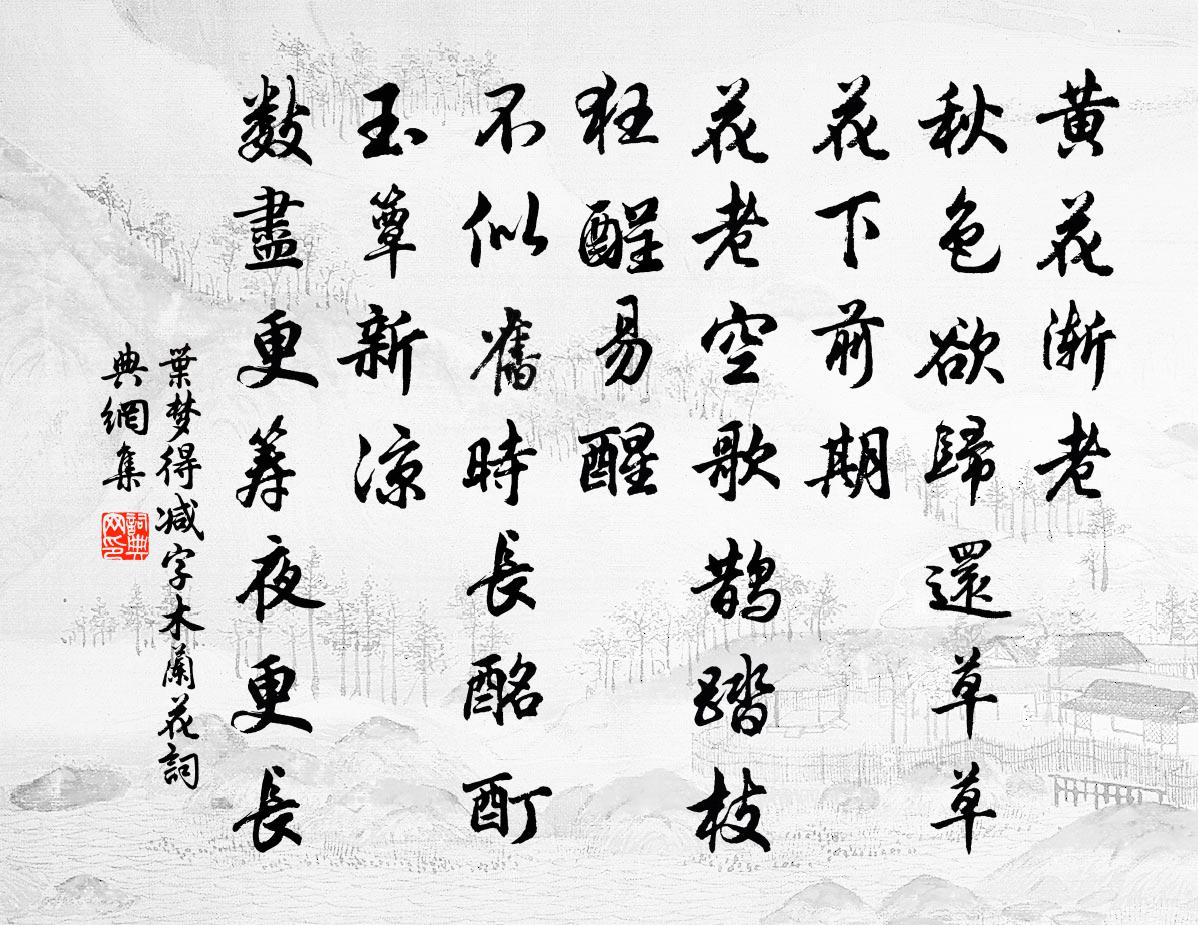 黃花漸老
秋色欲歸還草草
花下前期
花老空歌鵲踏枝
狂酲易醒
不似舊時長酩酊
玉簟新涼
數盡更籌夜更長
葉梦得減字木蘭花詞
典網集
詞典網印